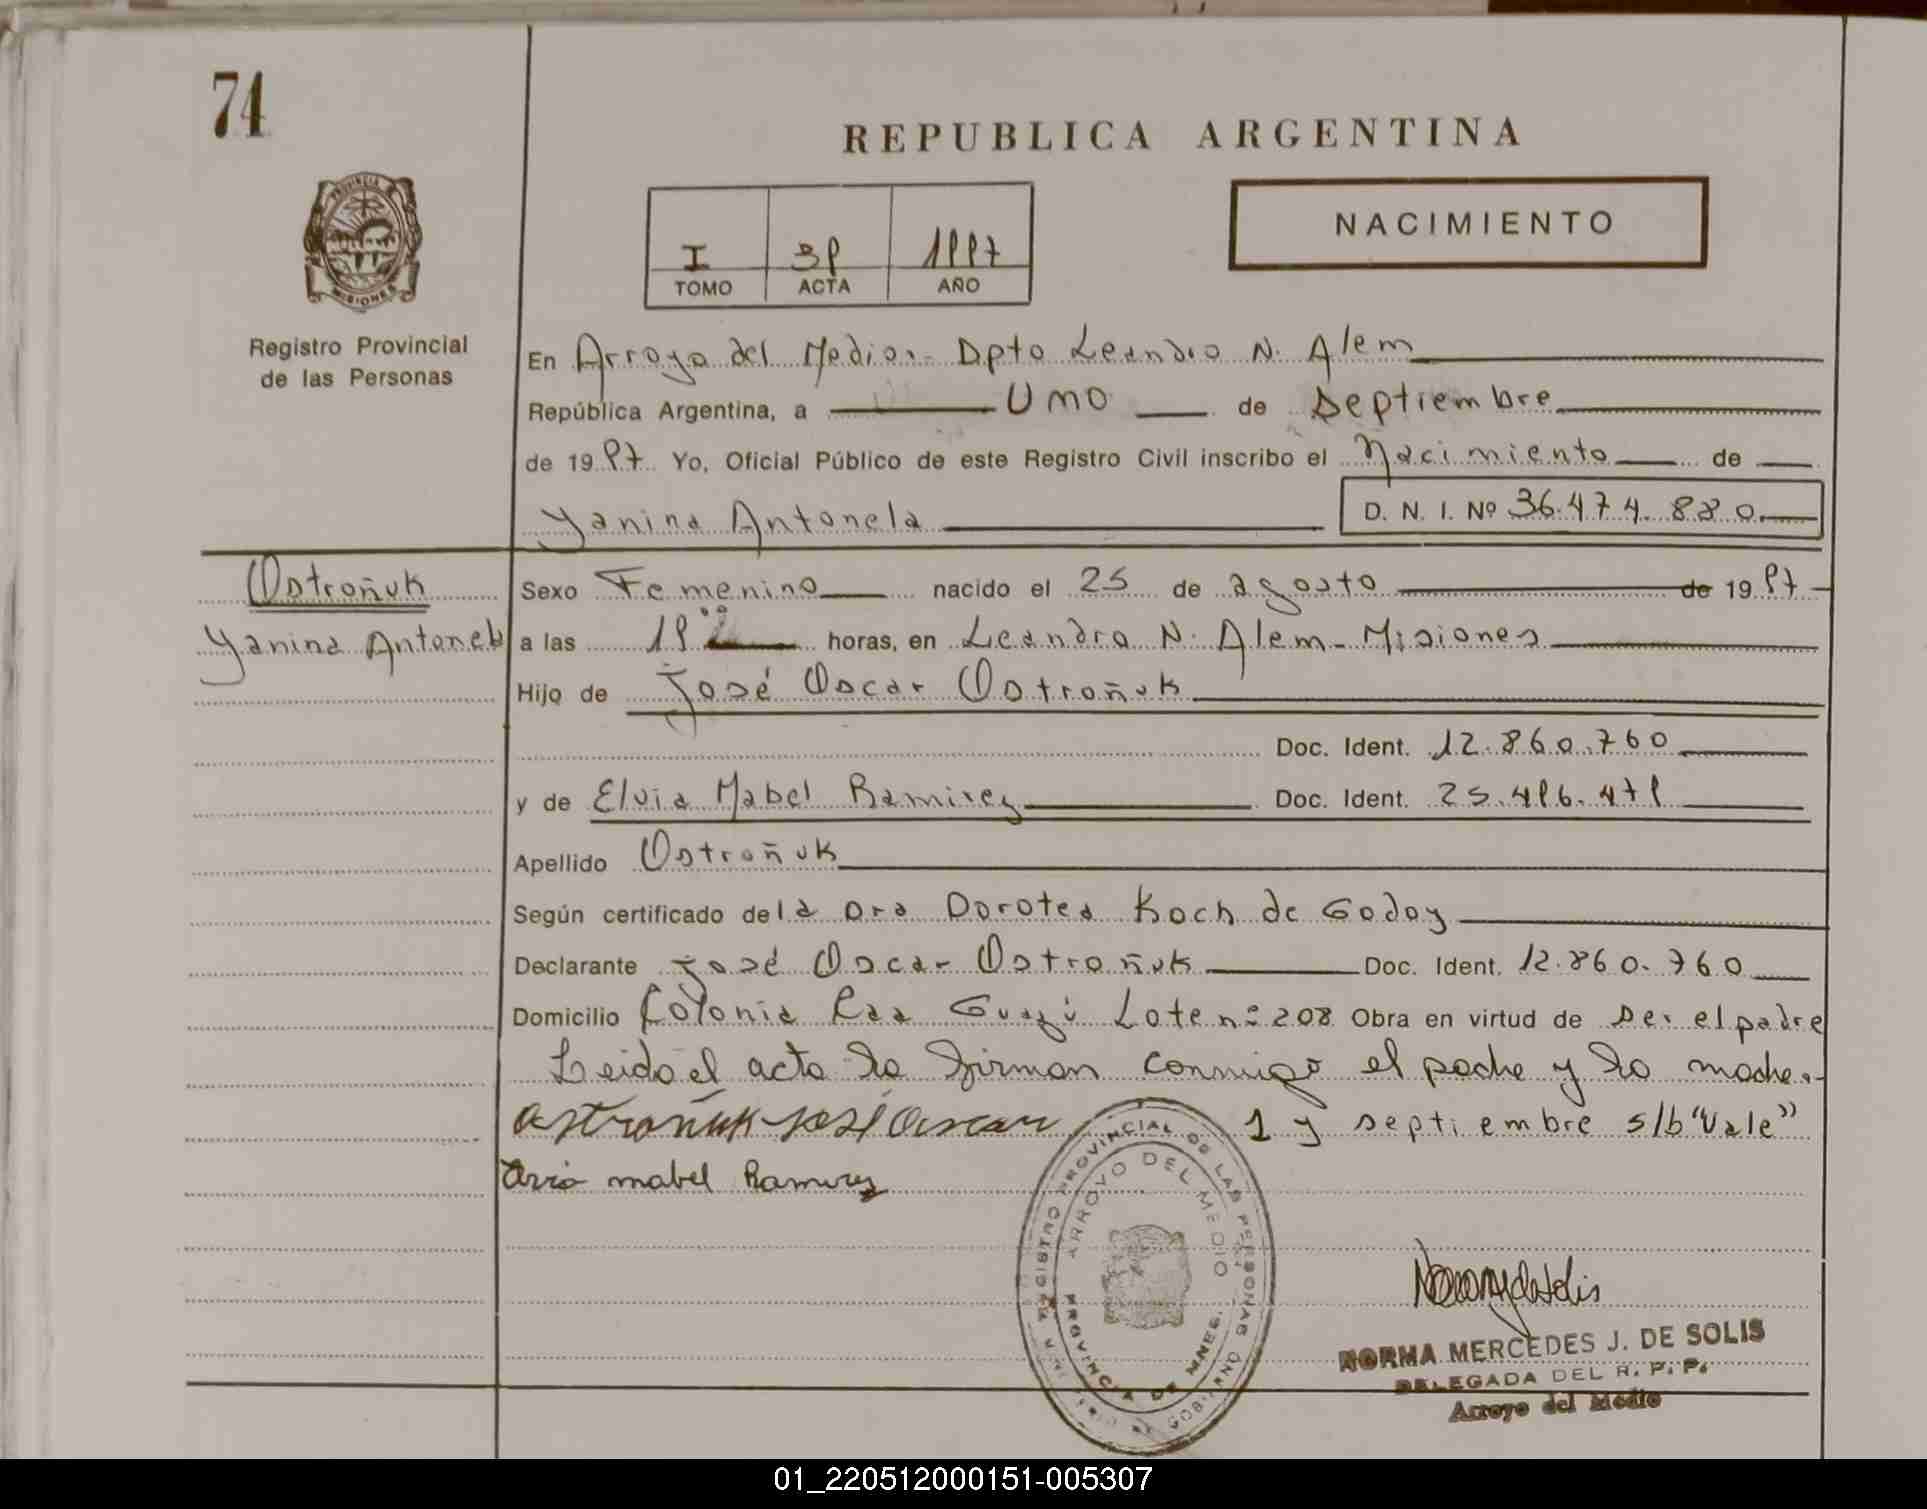 74
REPUBLICA ARGENTINA
PROVINCIA DE
MISIONES
I 39 1997
TOMO ACTA AÑO
NACIMIENTO
Registro Provincial
de las Personas
En Arroyo del Medio.- Dpto Leandro N. Alem
República Argentina, a Uno de Septiembre
de 1997 Yo, Oficial Público de este Registro Civil inscribo el Nacimiento de
Yanina Antonela D. N. I. Nº 36.474.880
Ostroñuk
Yanina Antonela
Sexo Femenino nacido el 25 de agosto de 1997
a las 19 horas, en Leandro N. Alem - Misiones
Hijo de José Oscar Ostroñuk
Doc. Ident. 12.860.760
y de Elvia Mabel Ramirez Doc. Ident. 25.496.479
Apellido Ostroñuk
Según certificado de la Dra Dorotea Koch de Godoy
Declarante José Oscar Ostroñuk Doc. Ident. 12.860.760
Domicilio Colonia Caa Guazú Lote nº 208 Obra en virtud de ser el padre
Leida el acta la firman conmigo el padre y la madre.-
Ostroñuk José Oscar 1 y septiembre s/b "Vale"
mabel Ramirez
REGISTRO PROVINCIAL DE LAS PERSONAS
ARROYO DEL MEDIO
PROVINCIA DE MNES.
NORMA MERCEDES J. DE SOLIS
DELEGADA DEL R. P. P.
Arroyo del Medio
01_220512000151-005307